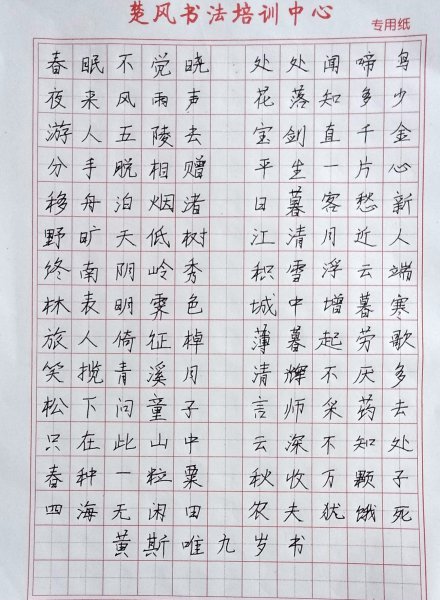 楚风书法培训中心
专用纸
春眠不觉晓 处处闻啼鸟
夜来风雨声 花落知多少
游人五陵去 宝剑直千金
分手脱相赠 平生一片心
移舟泊烟渚 日暮客愁新
野旷天低树 江清月近人
终南阴岭秀 积雪浮云端
林表明霁色 城中增暮寒
旅人倚征棹 薄暮起劳歌
笑揽青溪月 清辉不厌多
松下问童子 言师采药去
只在此山中 云深不知处
春种一粒粟 秋收万颗子
四海无闲田 农夫犹饿死
黄斯唯九岁书